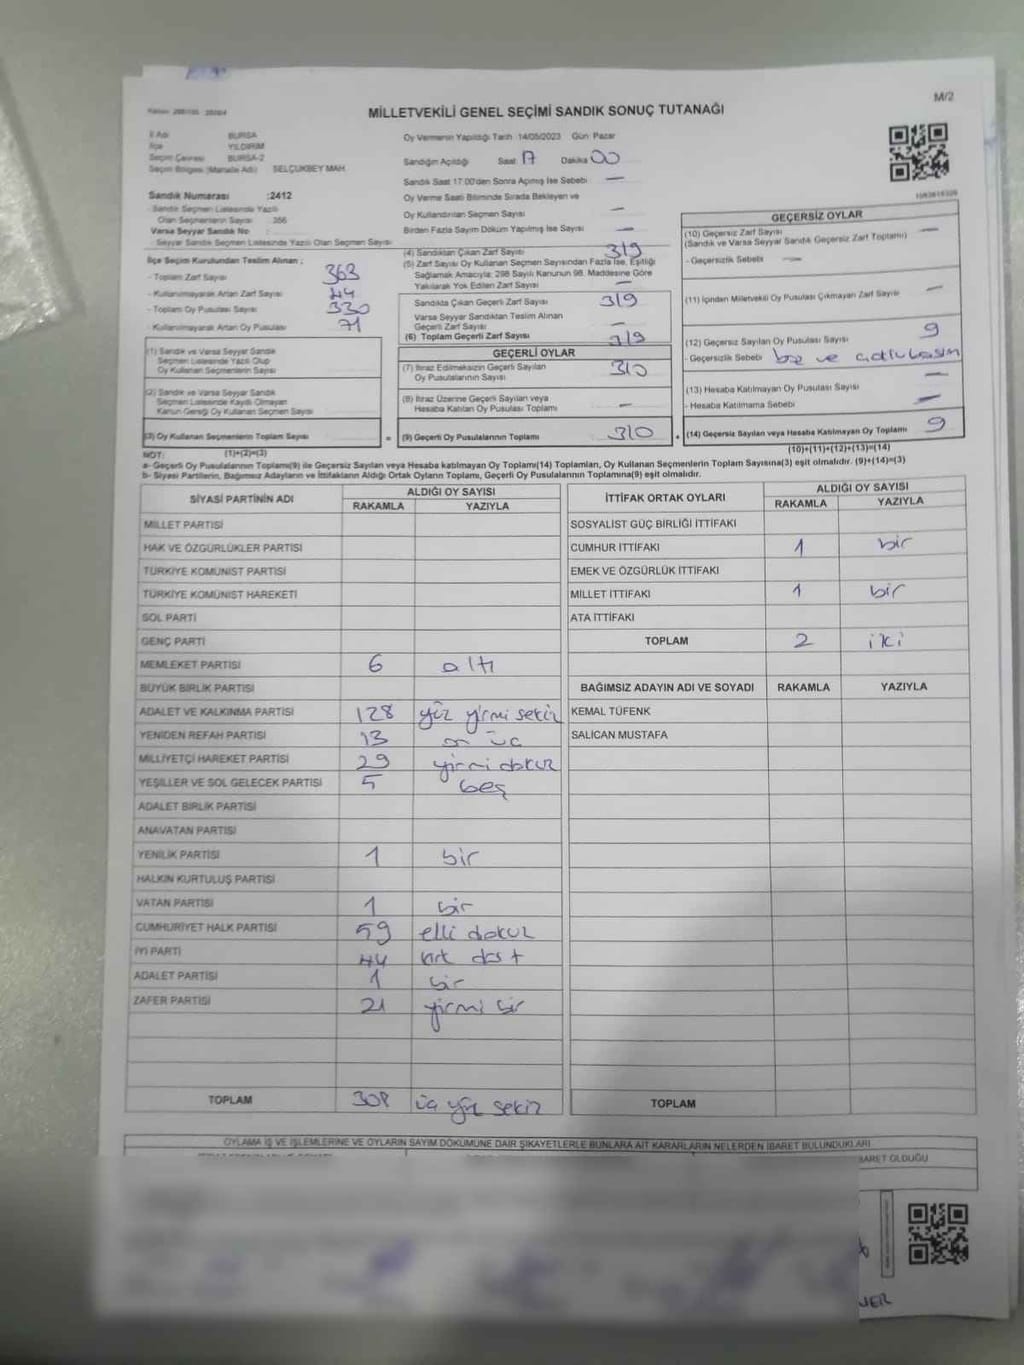 M/2
MİLLETVEKİLİ GENEL SEÇİMİ SANDIK SONUÇ TUTANAĞI
İl Adı BURSA
İlçe YILDIRIM
Seçim Çevresi BURSA-2
Seçim Bölgesi (Mahalle Adı) SELÇUKBEY MAH.
Oy Vermenin Yapıldığı Tarih 14/05/2023 Gün Pazar
Sandığın Açıldığı Saat 17 Dakika 00
Sandık Saat 17.00'den Sonra Açılmış İse Sebebi —
Oy Verme Saati Bitiminde Sırada Bekleyen ve
Oy Kullandırılan Seçmen Sayısı —
Birden Fazla Sayım Döküm Yapılmış İse Sayısı —
Sandık Numarası :2412
Sandık Seçmen Listesinde Yazılı
Olan Seçmenlerin Sayısı 356
Varsa Seyyar Sandık No :
- Seyyar Sandık Seçmen Listesinde Yazılı Olan Seçmen Sayısı
İlçe Seçim Kurulundan Teslim Alınan ;
- Toplam Zarf Sayısı 363
- Kullanılmayarak Artan Zarf Sayısı 44
- Toplam Oy Pusulası Sayısı 330
- Kullanılmayarak Artan Oy Pusulası 71
(1) Sandık ve Varsa Seyyar Sandık
Seçmen Listesinde Yazılı Olup
Oy Kullanan Seçmenlerin Sayısı
(2) Sandık ve Varsa Seyyar Sandık
Seçmen Listesinde Kaydı Olmayan
Kanun Gereği Oy Kullanan Seçmen Sayısı
(3) Oy Kullanan Seçmenlerin Toplam Sayısı =
(4) Sandıktan Çıkan Zarf Sayısı 319
(5) Zarf Sayısı Oy Kullanan Seçmen Sayısından Fazla İse, Eşitliği
Sağlamak Amacıyla; 298 Sayılı Kanunun 98. Maddesine Göre
Yakılarak Yok Edilen Zarf Sayısı —
Sandıkta Çıkan Geçerli Zarf Sayısı 319
Varsa Seyyar Sandıktan Teslim Alınan
Geçerli Zarf Sayısı —
(6) Toplam Geçerli Zarf Sayısı 319
GEÇERLİ OYLAR
(7) İtiraz Edilmeksizin Geçerli Sayılan
Oy Pusulalarının Sayısı 310
(8) İtiraz Üzerine Geçerli Sayılan veya
Hesaba Katılan Oy Pusulası Toplamı —
(9) Geçerli Oy Pusulalarının Toplamı 310 +
GEÇERSİZ OYLAR
(10) Geçersiz Zarf Sayısı
(Sandık ve Varsa Seyyar Sandık Geçersiz Zarf Toplamı) —
- Geçersizlik Sebebi —
(11) İçinden Milletvekili Oy Pusulası Çıkmayan Zarf Sayısı —
(12) Geçersiz Sayılan Oy Pusulası Sayısı 9
- Geçersizlik Sebebi
(13) Hesaba Katılmayan Oy Pusulası Sayısı —
- Hesaba Katılmama Sebebi —
(14) Geçersiz Sayılan veya Hesaba Katılmayan Oy Toplamı 9
NOT: (1)+(2)=(3) (10)+(11)+(12)+(13)=(14)
a- Geçerli Oy Pusulalarının Toplamı(9) ile Geçersiz Sayılan veya Hesaba katılmayan Oy Toplamı(14) Toplamları, Oy Kullanan Seçmenlerin Toplam Sayısına(3) eşit olmalıdır. (9)+(14)=(3)
b- Siyasi Partilerin, Bağımsız Adayların ve İttifakların Aldığı Ortak Oyların Toplamı, Geçerli Oy Pusulalarının Toplamına(9) eşit olmalıdır.
SİYASİ PARTİNİN ADI ALDIĞI OY SAYISI
RAKAMLA YAZIYLA
MİLLET PARTİSİ
HAK VE ÖZGÜRLÜKLER PARTİSİ
TÜRKİYE KOMÜNİST PARTİSİ
TÜRKİYE KOMÜNİST HAREKETİ
SOL PARTİ
GENÇ PARTİ
MEMLEKET PARTİSİ 6 altı
BÜYÜK BİRLİK PARTİSİ
ADALET VE KALKINMA PARTİSİ 128 yüz yirmi sekiz
YENİDEN REFAH PARTİSİ 13 on üç
MİLLİYETÇİ HAREKET PARTİSİ 29 yirmi dokuz
YEŞİLLER VE SOL GELECEK PARTİSİ 5 beş
ADALET BİRLİK PARTİSİ
ANAVATAN PARTİSİ
YENİLİK PARTİSİ 1 bir
HALKIN KURTULUŞ PARTİSİ
VATAN PARTİSİ 1 bir
CUMHURİYET HALK PARTİSİ 59 elli dokuz
İYİ PARTİ 44 kırk dört
ADALET PARTİSİ 1 bir
ZAFER PARTİSİ 21 yirmi bir
TOPLAM 308 üç yüz sekiz
İTTİFAK ORTAK OYLARI ALDIĞI OY SAYISI
RAKAMLA YAZIYLA
SOSYALİST GÜÇ BİRLİĞİ İTTİFAKI
CUMHUR İTTİFAKI 1 bir
EMEK VE ÖZGÜRLÜK İTTİFAKI
MİLLET İTTİFAKI 1 bir
ATA İTTİFAKI
TOPLAM 2 iki
BAĞIMSIZ ADAYIN ADI VE SOYADI RAKAMLA YAZIYLA
KEMAL TÜFENK
SALİCAN MUSTAFA
TOPLAM
OYLAMA İŞ VE İŞLEMLERİNE VE OYLARIN SAYIM DÖKÜMÜNE DAİR ŞİKAYETLERLE BUNLARA AİT KARARLARIN NELERDEN İBARET BULUNDUKLARI
BARET OLDUĞU